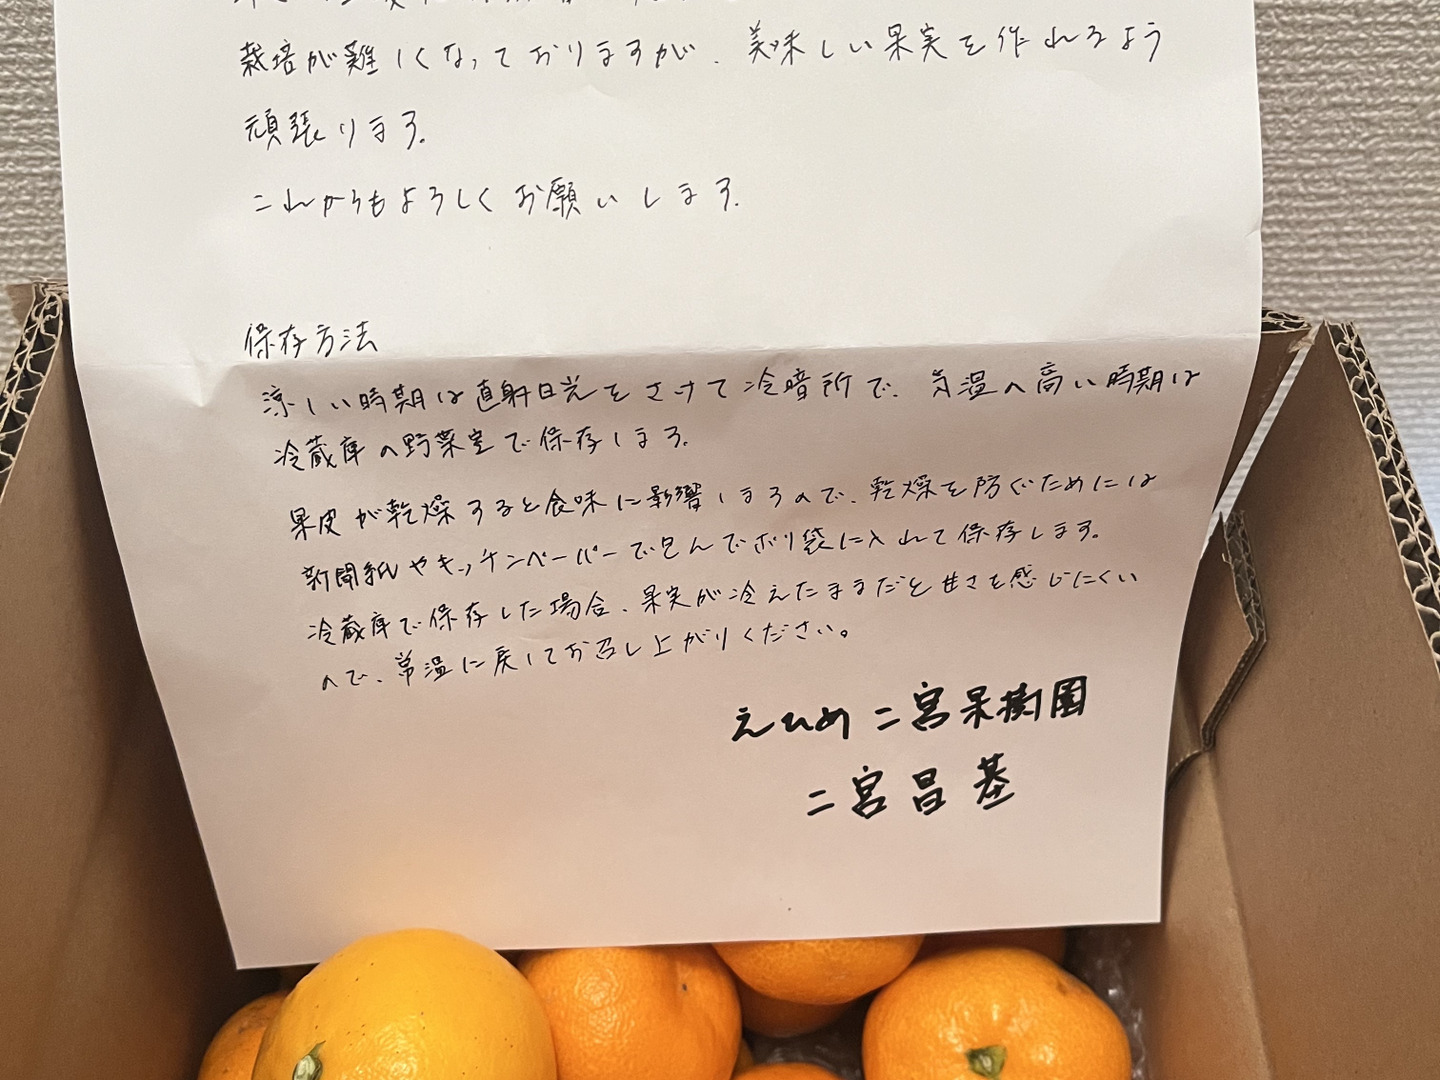 栽培が難しくなっておりますが、美味しい果実を作れるよう
頑張ります。
これからもよろしくお願いします。
保存方法
涼しい時期は直射日光をさけて冷暗所で、気温の高い時期は
冷蔵庫の野菜室で保存します。
果皮が乾燥すると食味に影響しますので、乾燥を防ぐためには
新聞紙やキッチンペーパーで包んでポリ袋に入れて保存します。
冷蔵庫で保存した場合、果実が冷えたままだと甘さを感じにくい
ので、常温に戻してお召し上がりください。
えひめ二宮果樹園
二宮昌基